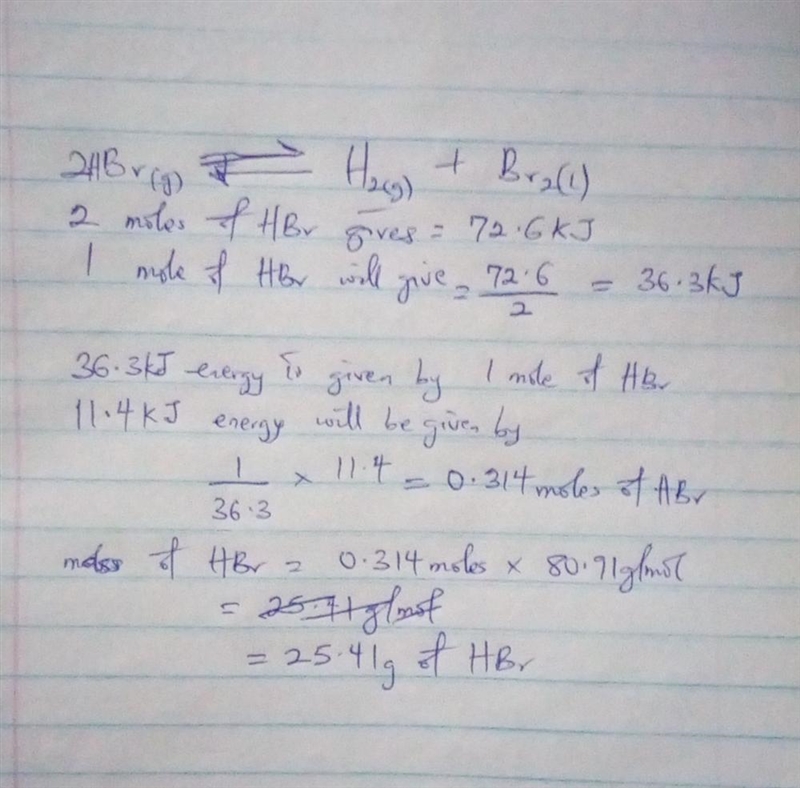 2HBr(g) ⇌ H2(g) + Br2(l)
2 moles of HBr gives = 72.6KJ
1 mole of HBr will give = 72.6/2 = 36.3kJ
36.3kJ energy is given by 1 mole of HBr
11.4KJ energy will be given by
1/36.3 × 11.4 = 0.314 moles of HBr
mass of HBr = 0.314 moles × 80.91g/mol
= 25.41g/mol
= 25.41g of HBr